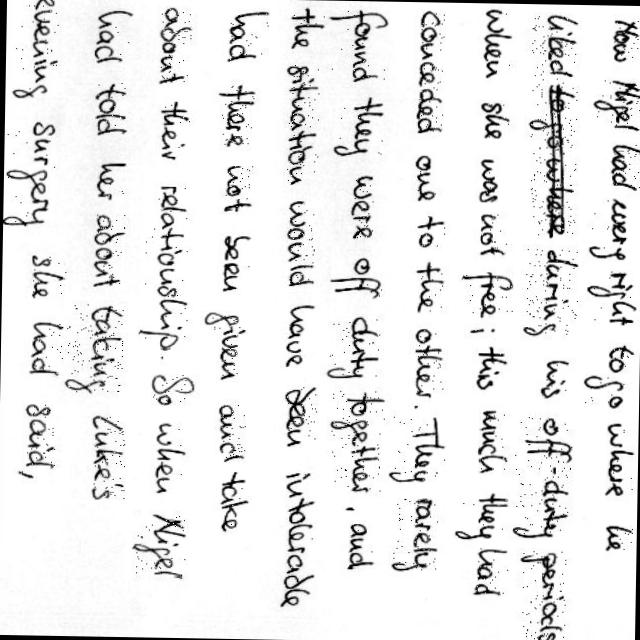 Now Nigel had every right to go where he
liked to go where during his off-duty periods
when she was not free; this much they had
conceded one to the other. They rarely
found they were off duty together, and
the situation would have been intolerable
had there not been given and take
about their relationship. So when Nigel
had told her about taking Luke's
evening surgery she had said,